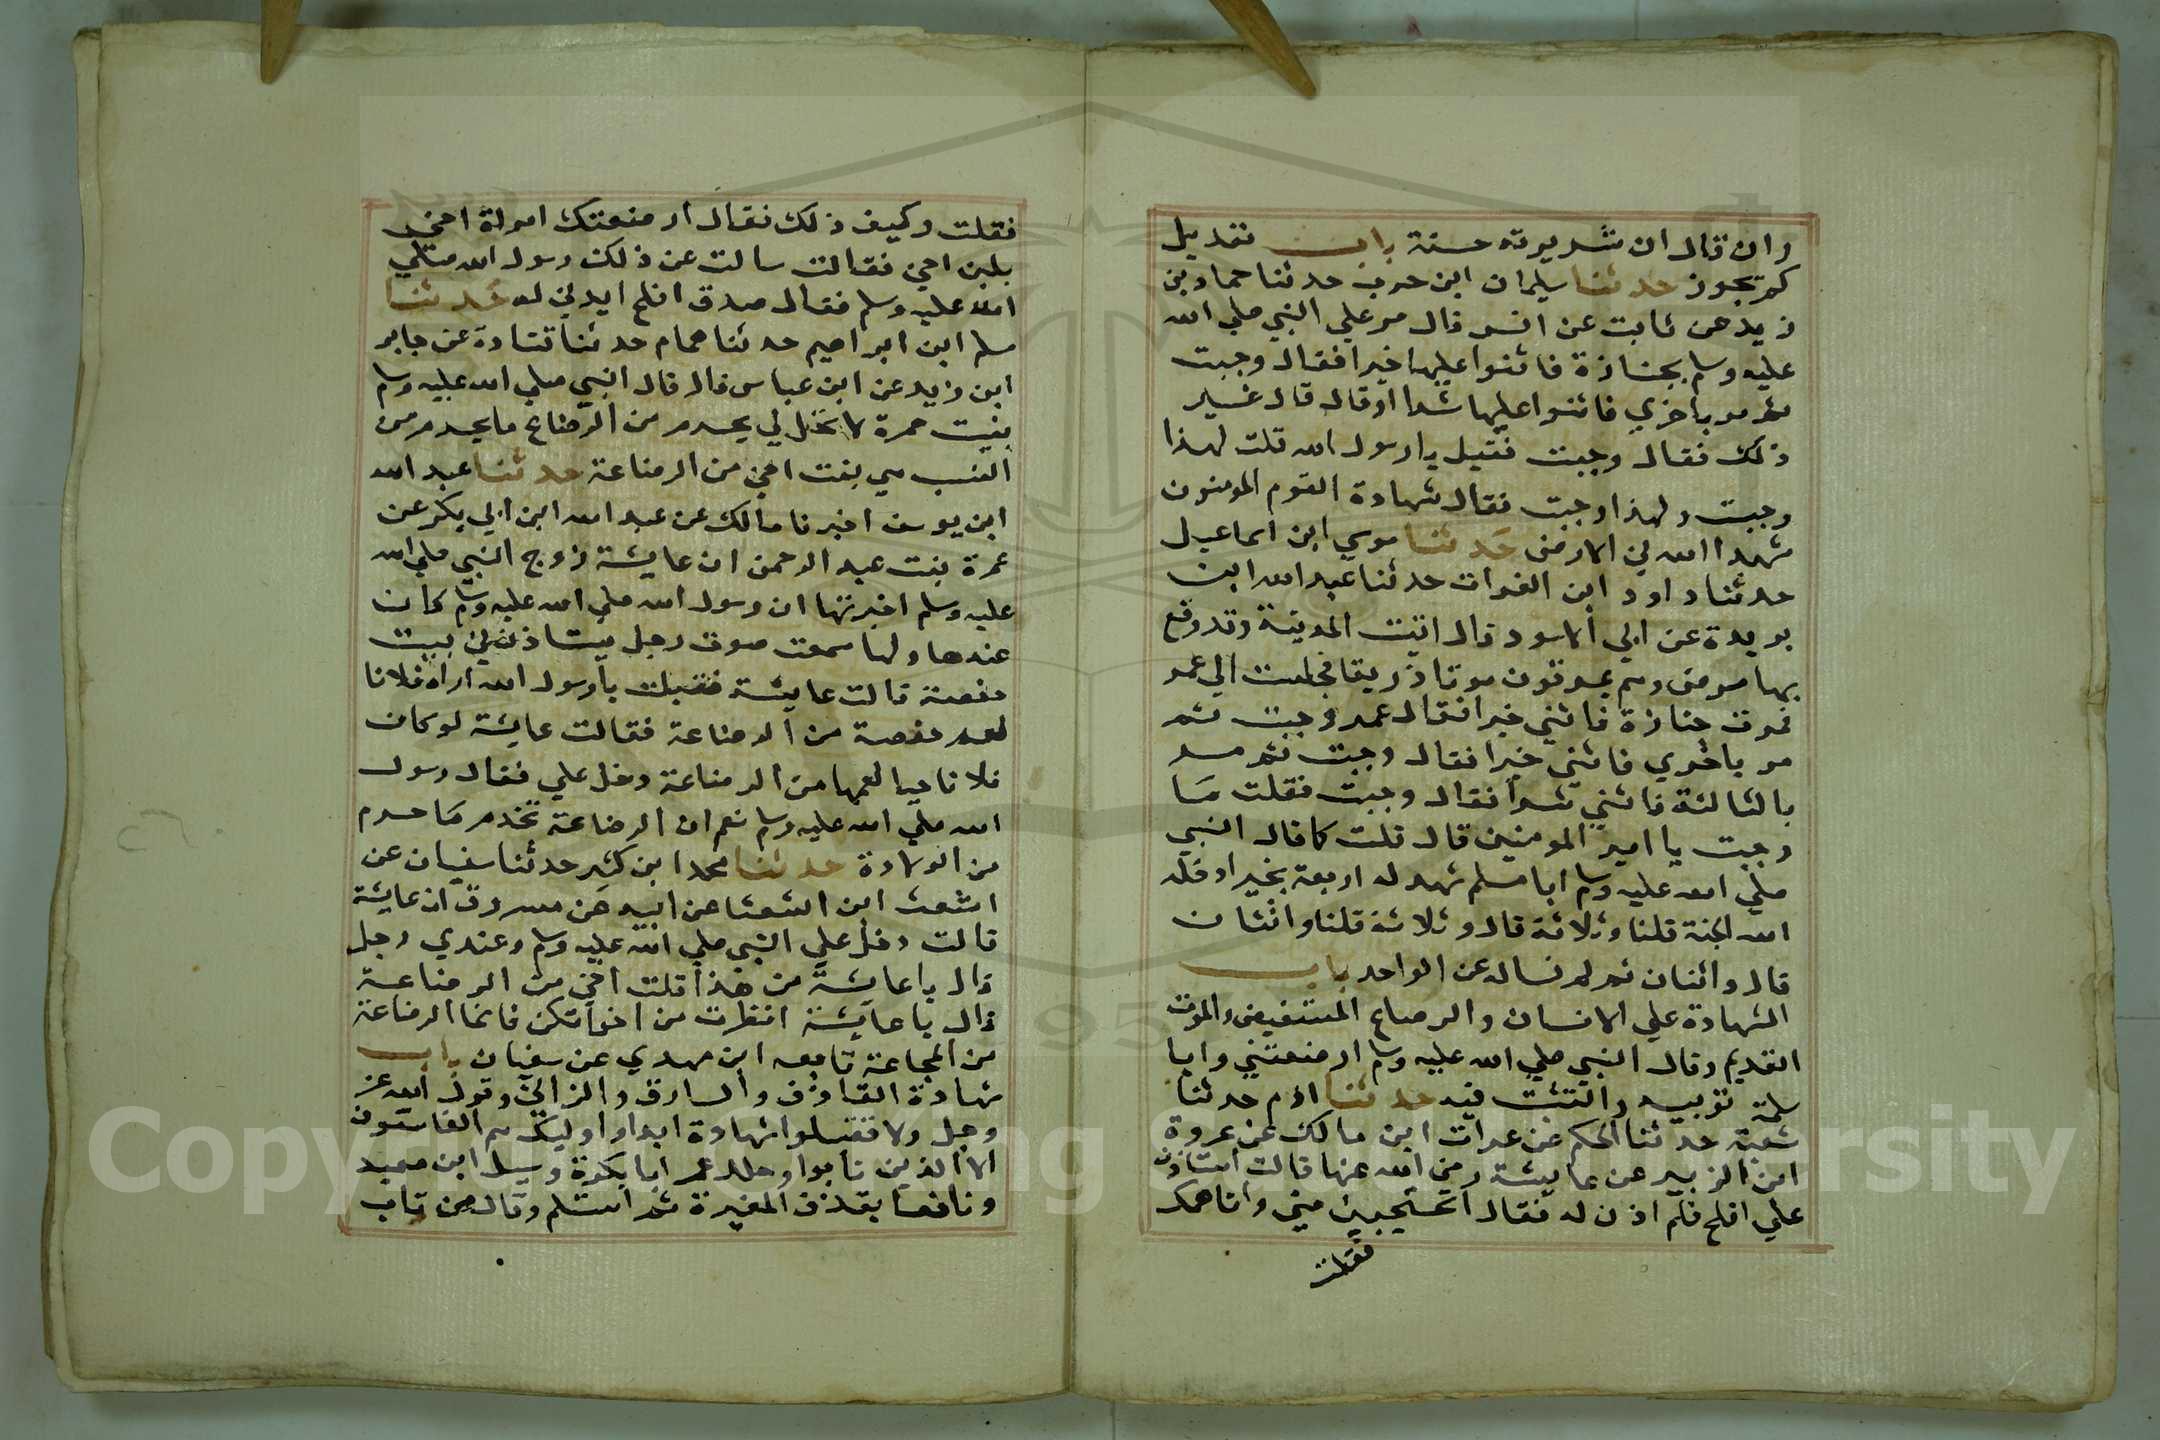 وان قال ان سريرته حسنة باب تعديل
كم يجوز حدثنا سليمان ابن حرب حدثنا حماد بن
زيد عن ثابت عن انس قال مر علي النبي صلي الله
عليه وسلم بجنازة فاثنوا عليها خيرا فقال وجبت
ثم مر باخري فاثنوا عليها شرا او قال قال غير
ذلك فقال وجبت فقيل يارسول الله قلت لهذا
وجبت ولهذا وجبت فقال شهادة القوم المومنون
شهدا الله في الارض حدثنا موسي ابن اسماعيل
حدثنا داود ابن الفرات حدثنا عبد الله ابن
بريدة عن ابي الاسود قال اتيت المدينة وقد وقع
بها مرض وهم يموتون موتا ذريقا فجلست الي عمر
فموت جنازة فاثني خيرا فقال عمر وجبت ثم
مر باخري فاثني خيرا فقال وجبت ثم مر
بالثالثة فاثني شرا فقال وجبت فقلت مَا
وجبت يا امير المومنين قال قلت كما قال النبي
صلي الله عليه وسلم ايما مسلم شهد له اربعة بخير ادخله
الله الجنة قلنا وثلاثة قال وثلاثة قلنا واثنان
قال واثنان ثم لم نساله عن الواحد باب
الشهادة علي الانساب والرضاع المستفيض والموت
القديم وقال النبي صلي الله عليه وسلم ارضعتني وابا
سلمة ثويبه والتثبت فيه حدثنا ادم حدثنا
شعبة حدثنا الحكم عن عراك ابن مالك عن عروة
ابن الزبير عن عايشة رضي الله عنها قالت استاذن
علي افلح فلم اذن له فقال اتحتجبين مني وانا عمك
فقلت
فقلت وكيف ذلك فقال ارضعتك امراة اخي
بلبن اخي فقالت سالت عن ذلك رسول الله صلي
الله عليه وسلم فقال صدق افلح ايذني له حدثنا
مسلم ابن ابراهيم حدثنا همام حدثنا قتادة عن جابر
ابن زيد عن ابن عباس قال قال النبي صلي الله عليه وسلم
بنت حمزة لا تحل لي يحرم من الرضاع ما يحرم من
النسب هي بنت اخي من الرضاعة حدثنا عبد الله
ابن يوسف اخبرنا مالك عن عبد الله ابن ابي بكر عن
عمرة بنت عبد الرحمن ان عايشة زوج النبي صلي الله
عليه وسلم اخبرتها ان رسول الله صلي الله عليه وسلم كان
عندها وانها سمعت صوت رجل يستاذن في بيت
حفصة قالت عايشة فقلت يارسول الله اراه فلانا
لعم حفصة من الرضاعة فقالت عايشة لو كان
فلانا حيا لعمها من الرضاعة دخل علي فقال رسول
الله صلي الله عليه وسلم نعم ان الرضاعة تحرم مَا حرم
من الولادة حدثنا محمد ابن كثير حدثنا سفيان عن
اشعث ابن الشعثا عن ابيه عن مسروق ان عايشة
قالت دخل علي النبي صلي الله عليه وسلم وعندي رجل
قال يا عايشة من هذا قلت اخي من الرضاعة
قال يا عايشة انظرت من اخواتكن فانما الرضاعة
من المجاعة تابعه ابن مهدي عن سفيان باب
شهادة القاذف والسارق والزاني وقول الله عز
وجل ولا تقبلوا شهادة ابدا واوليك هم الفاسقون
الا الذين تابوا وجلد عمر ابا بكرة وسبل ابن معبد
ونافعا بقذف المغيرة ثم استلم وقال من تاب